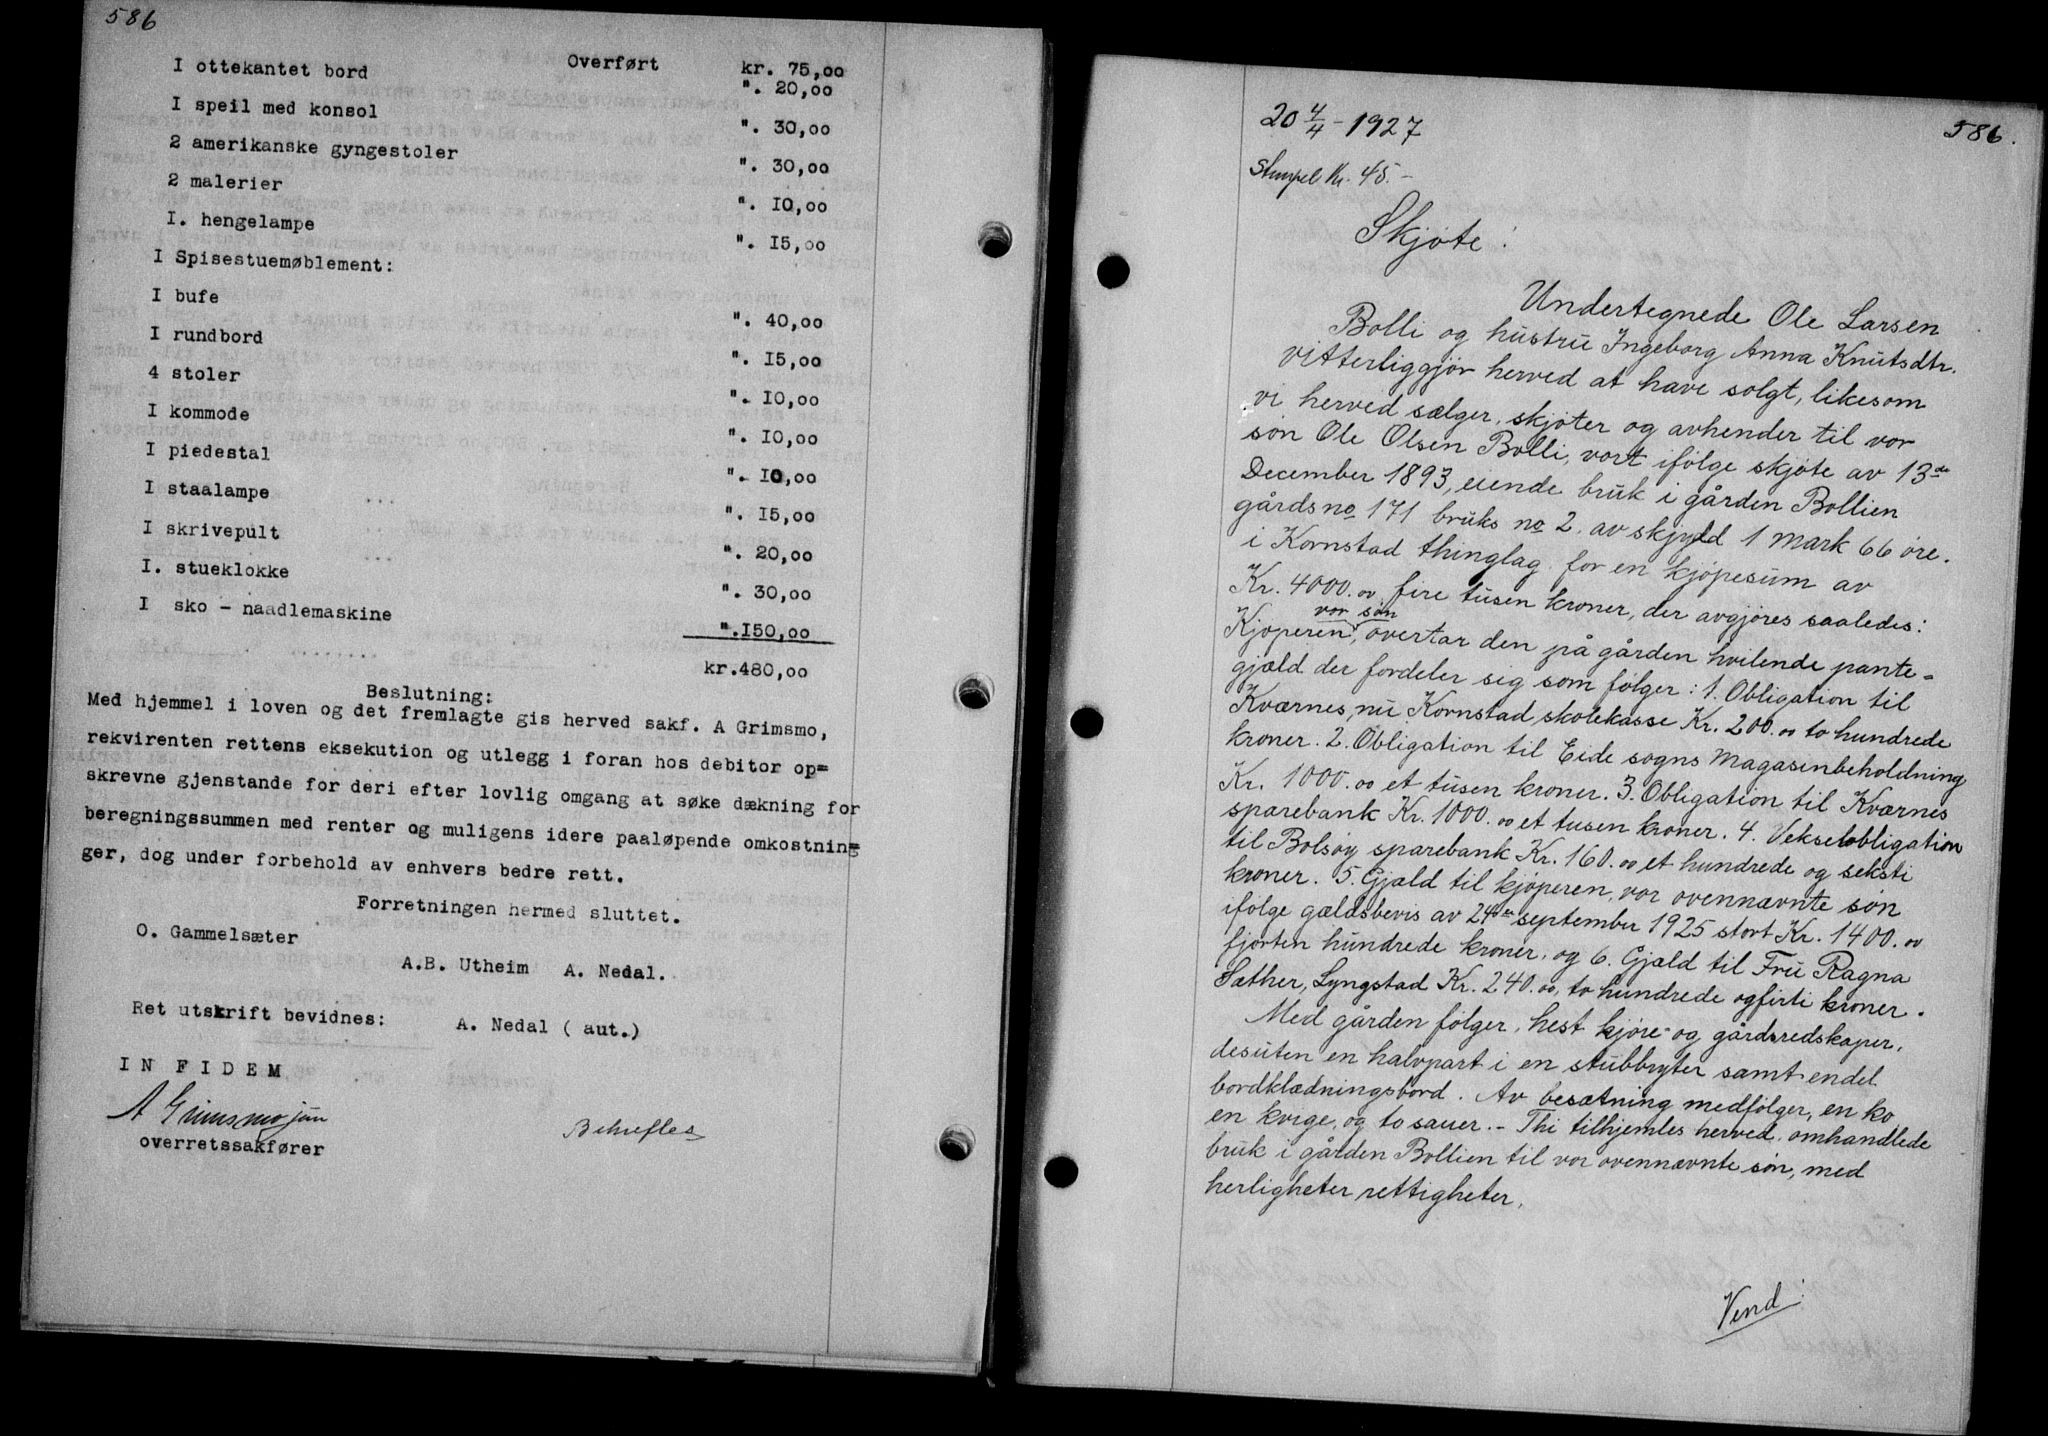 586
Overført kr. 75,00
I ottekantet bord ". 20,00
I speil med konsol ". 30,00
2 amerikanske gyngestoler ". 30,00
2 malerier ". 10,00
I. hengelampe ". 15,00
I Spisestuemøblement:
I bufe ". 40,00
I rundbord ". 15,00
4 stoler ". 10,00
I kommode ". 10,00
I piedestal ". 10,00
I staalampe ". 15,00
I skrivepult ". 20,00
I. stueklokke ". 30,00
I sko - naadlemaskine ".150,00
kr.480,00
Beslutning:
Med hjemmel i loven og det fremlagte gis herved sakf. A Grimsmo,
rekvirenten rettens eksekution og utlegg i foran hos debitor op=
skrevne gjenstande for deri efter lovlig omgang at søke dækning for
beregningssummen med renter og muligens idere paaløpende omkostning=
ger, dog under forbehold av enhvers bedre rett.
Forretningen hermed sluttet.
O. Gammelsæter
A.B. Utheim A. Nedal.
Ret utskrift bevidnes: A. Nedal ( aut.)
IN FIDEM
A Grimsmo jun
overretssakfører
Bekreftes
20 4/4 - 1927
586.
Stempel Kr. 45.-
Skjøte:
Undertegnede Ole Larsen
Bolli og hustru Ingeborg Anna Knutsdtr.
vitterliggjør herved at have solgt, likesom
vi herved sælger, skjøter og avhender til vor
søn Ole Olsen Bolli, vort ifølge skjøte av 13de
December 1893, eiende bruk i gården Bollien
gårdsno 171 bruks no 2. av skjyld 1 mark 66 øre.
i Kornstad thinglag for en kjøpesum av
Kr. 4000.00, fire tusen kroner, der avgjøres saaledes:
vor søn
Kjøperen, overtar den på gården hvilende pante=
gjæld der fordeler sig som følger: 1. Obligation til
Kværnes, nu Kornstad skolekasse Kr. 200.00 to hundrede
kroner. 2. Obligation til Eide sogns Magasinbeholdning
Kr. 1000.00 et tusen kroner. 3. Obligation til Kværnes
sparebank Kr. 1000.00 et tusen kroner. 4. Vekselobligation
til Bolsøy sparebank Kr. 160.00 et hundrede og seksti
kroner. 5. Gjæld til kjøperen, vor ovennævnte søn
ifølge gældsbevis av 24de september 1925 stort Kr. 1400.00
fjorten hundrede kroner, og 6. Gjæld til Fru Ragna
Sæther, Lyngstad Kr. 240.00, to hundrede og firti kroner.
Med gården følger, hest kjøre- og gårdsredskaper,
desuten en halvpart i en stubbryter samt endel
bordklædningsbord. Av besætning medfølger, en ko
en kvige, og to sauer. - Thi tilhjemles herved omhandlede
bruk i gården Bollien til vor ovennævnte søn, med
herligheter rettigheter,
Vend: